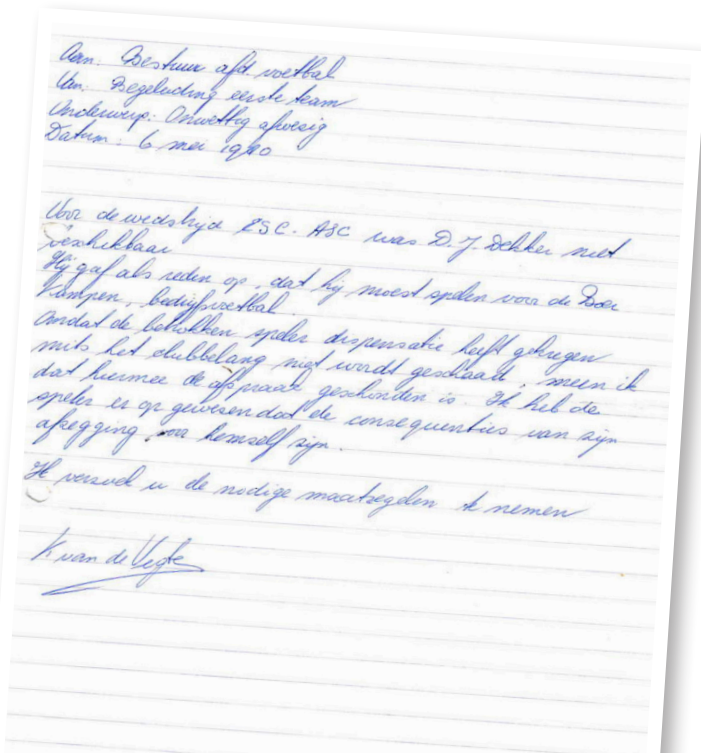 Aan: Bestuur afd voetbal
Van: Begeleiding eerste team
Onderwerp: Onwettig afwezig
Datum: 6 mei 1980
Voor de wedstrijd ZSC - ASC was D.J. Dekker niet
beschikbaar
Hij gaf als reden op, dat hij moest spelen voor de Boer
Kampen, bedrijfsvoetbal.
Omdat de betrokken speler dispensatie heeft gekregen
mits het clubbelang niet wordt geschaad, meen ik
dat hiermee de afspraak geschonden is. Ik heb de
speler er op gewezen dat de consequenties van zijn
afzegging voor hemself zijn.
Ik verzoek u de nodige maatregelen te nemen
K van de Vegte